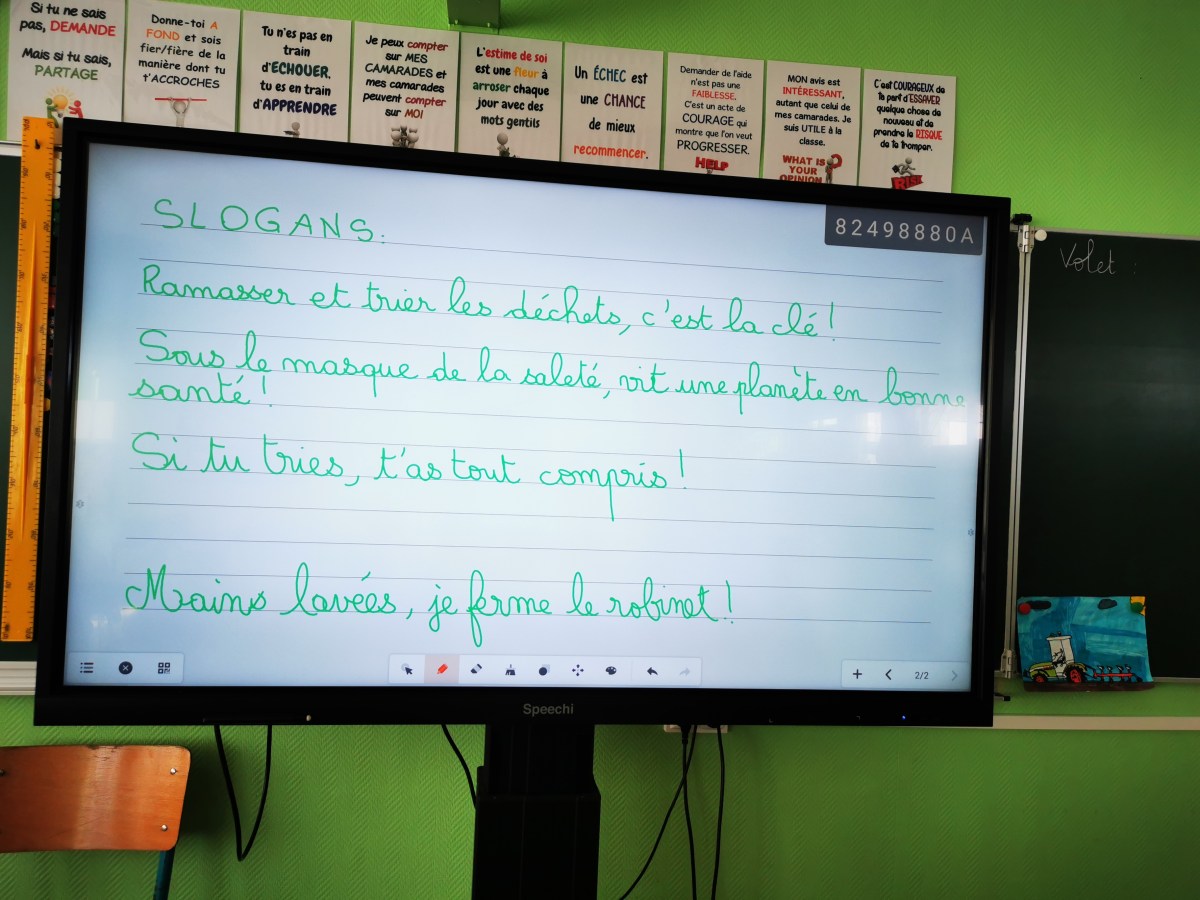 Si tu ne sais
pas, DEMANDE
Mais si tu sais,
PARTAGE
Donne-toi A
FOND et sois
fier/fière de la
manière dont tu
t'ACCROCHES
Tu n'es pas en
train
d'ECHOUER,
tu es en train
d'APPRENDRE
Je peux compter
sur MES
CAMARADES et
mes camarades
peuvent compter
sur MOI
L'estime de soi
est une fleur à
arroser chaque
jour avec des
mots gentils
Un ÉCHEC est
une CHANCE
de mieux
recommencer.
Demander de l'aide
n'est pas une
FAIBLESSE.
C'est un acte de
COURAGE qui
montre que l'on veut
PROGRESSER.
HELP
MON avis est
INTÉRESSANT,
autant que celui de
mes camarades. Je
suis UTILE à la
classe.
WHAT IS
YOUR
OPINION
C'est COURAGEUX de
ta part d'ESSAYER
quelque chose de
nouveau et de
prendre le RISQUE
de te tromper.
RISK
82498880A
SLOGANS.
Ramasser et trier les déchets, c'est la clé !
Sous le masque de la saleté, vit une planète en bonne
santé !
Si tu tries, t'as tout compris !
Mains lavées, je ferme le robinet !
2/2
Speechi
Volet :